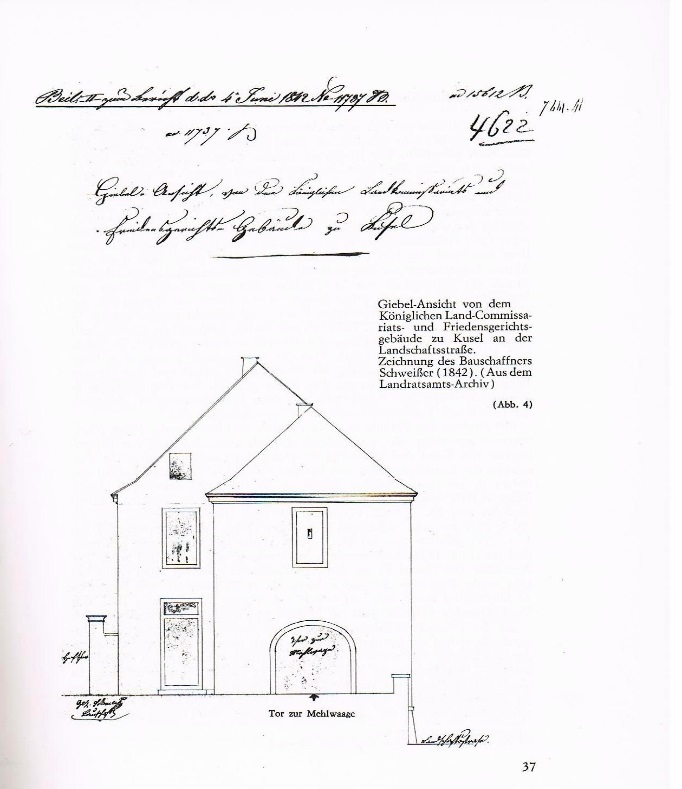 Beil. II zum Bericht d.do 4t Juni 1842 No 11737 D.
ad 15612 D.
ad 11737 D
4622
Giebel-Ansicht, von dem Königlichen Landkommissariats und
Friedensgerichts-Gebäude zu Kusel
Giebel-Ansicht von dem
Königlichen Land-Commissa-
riats- und Friedensgerichts-
gebäude zu Kusel an der
Landschaftsstraße.
Zeichnung des Bauschaffners
Schweißer (1842). (Aus dem
Landratsamts-Archiv)
(Abb. 4)
Thor zur
Mehlwaage
Tor zur Mehlwaage
Landschaftsstrasse.
37